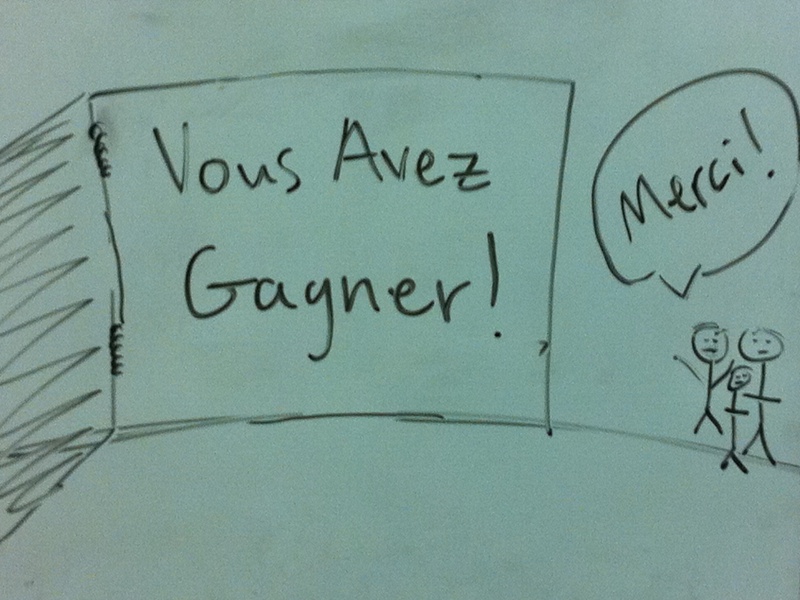 Vous Avez
Gagner!
Merci!